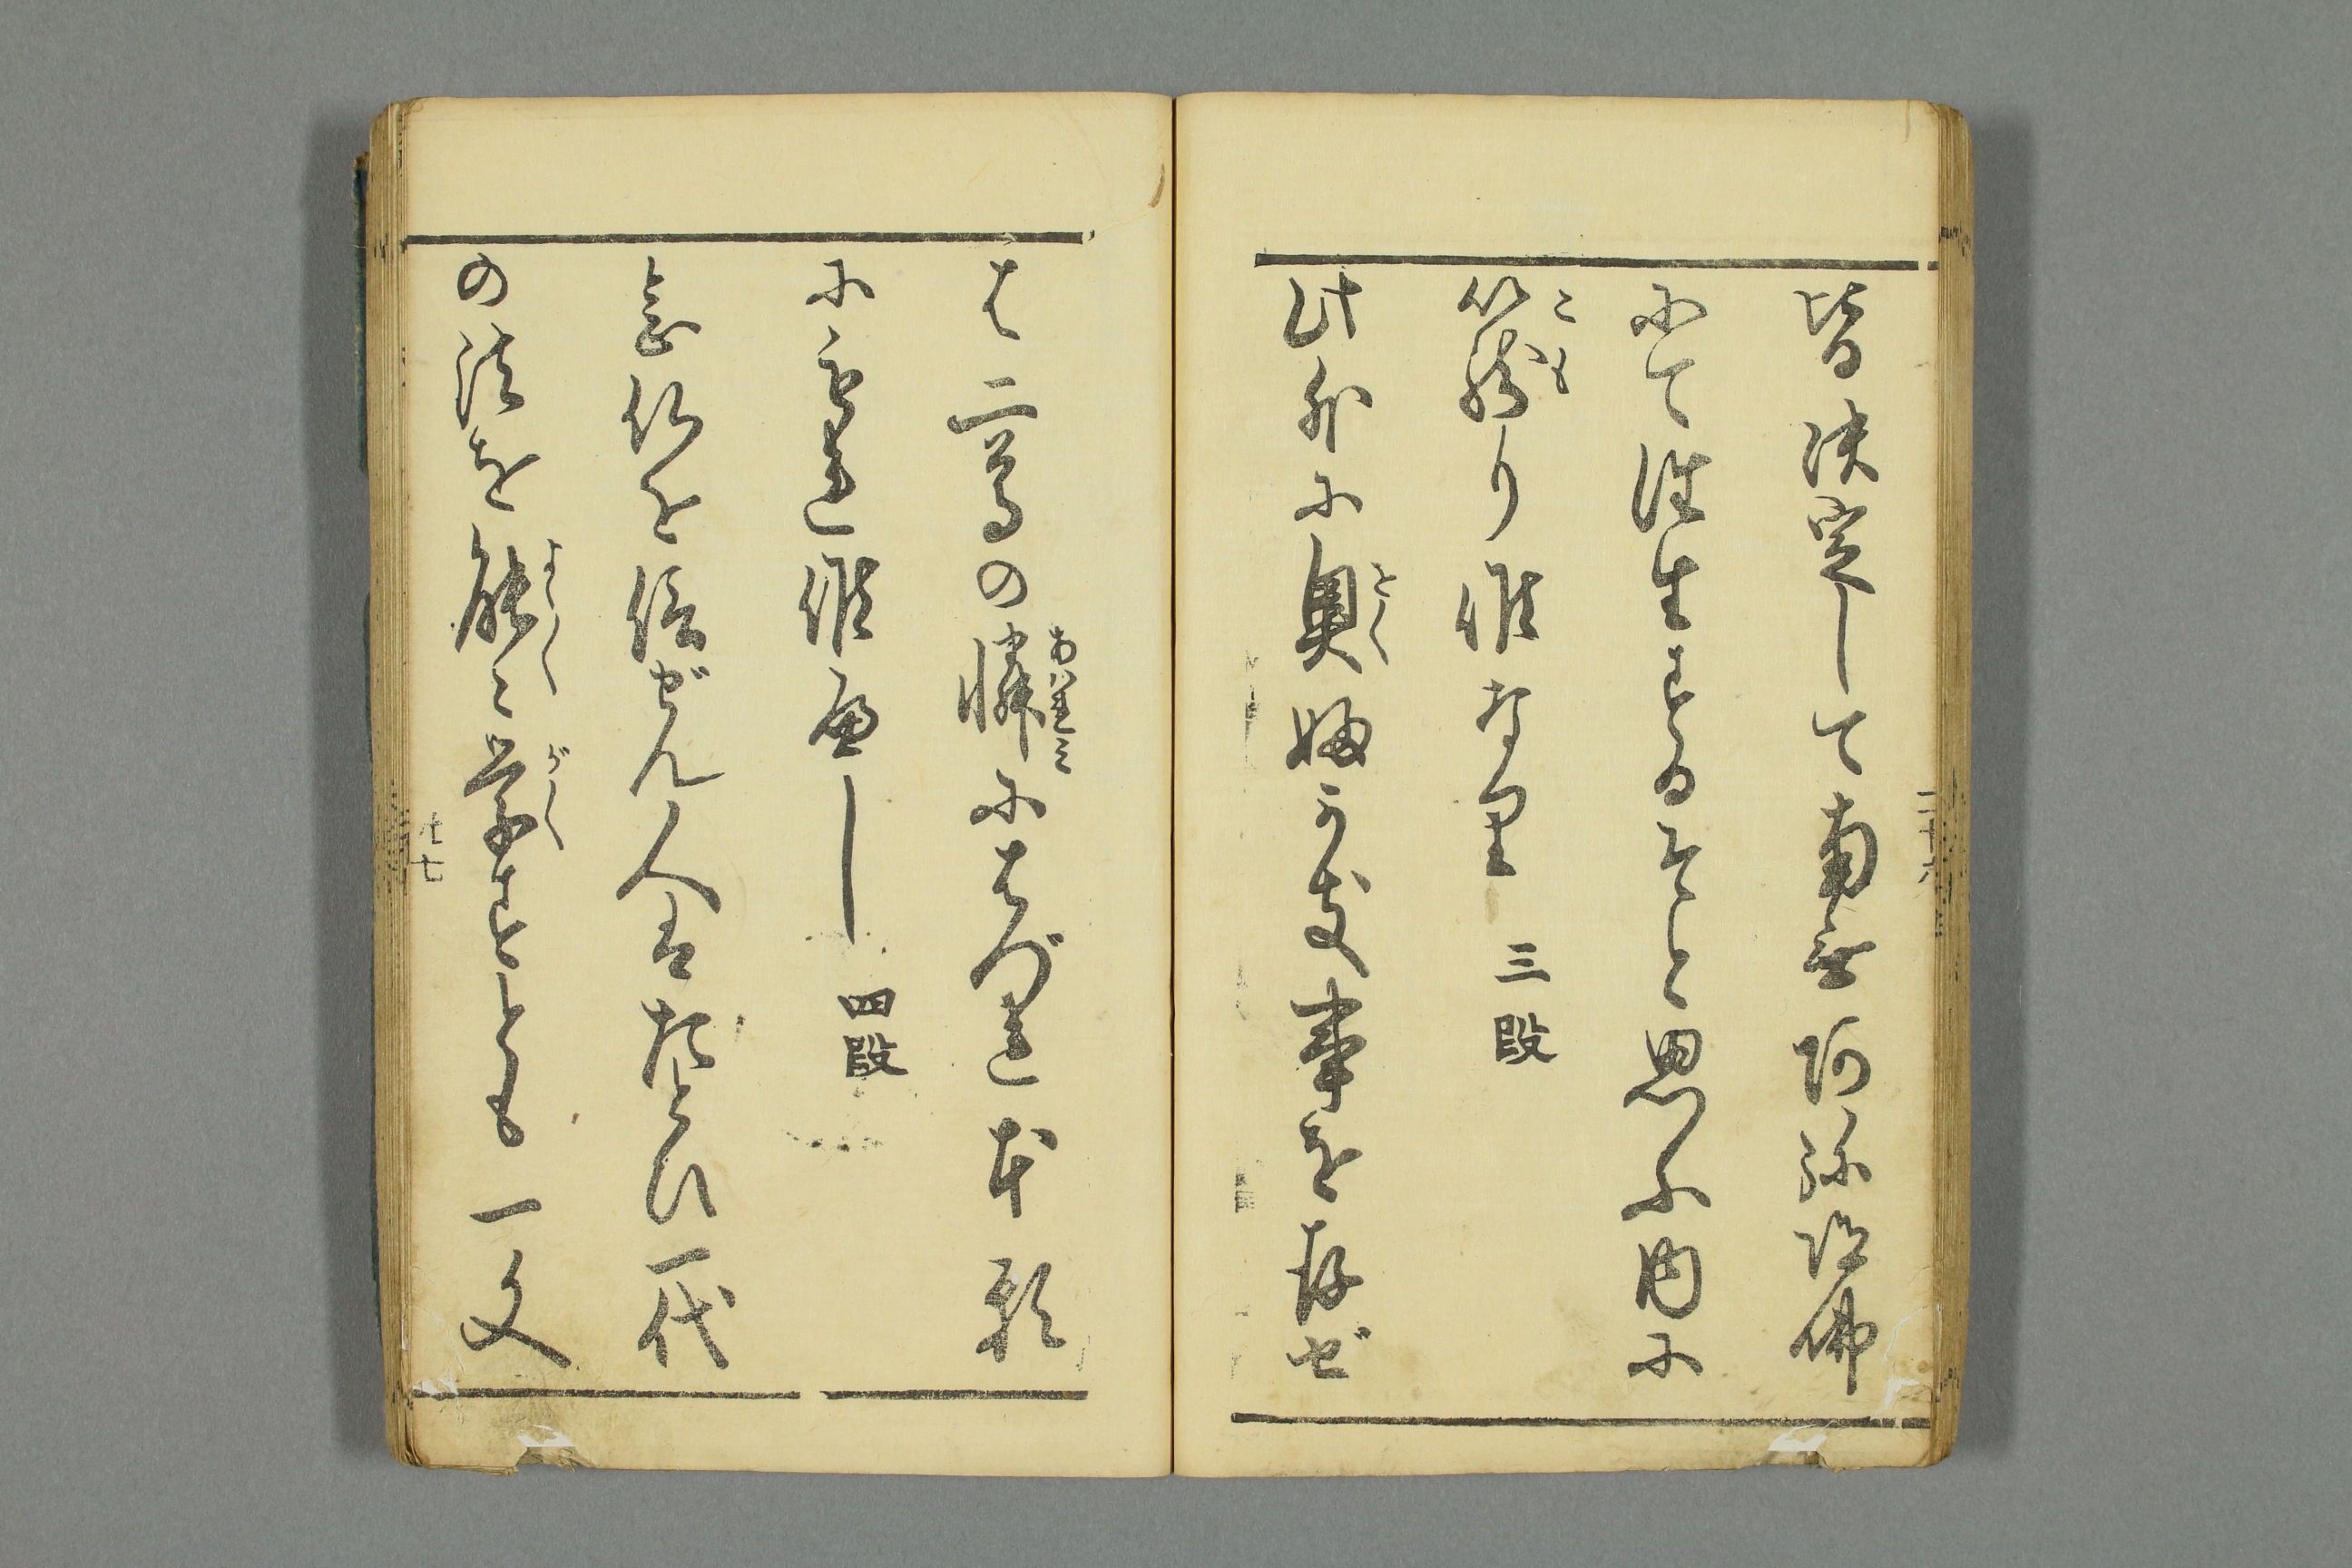 皆決定して南無阿弥陀佛
にて往生するぞと思ふ内に
篭り候なり 三段
こも
此外に奥ふかき事を存ぜ
をく
は二尊の憐にはづれ本願
あはれミ
にもれ候べし 四段
念仏を信ぜん人はたとひ一代
の法を能々学すとも一文
よく〳〵 がく
廿七